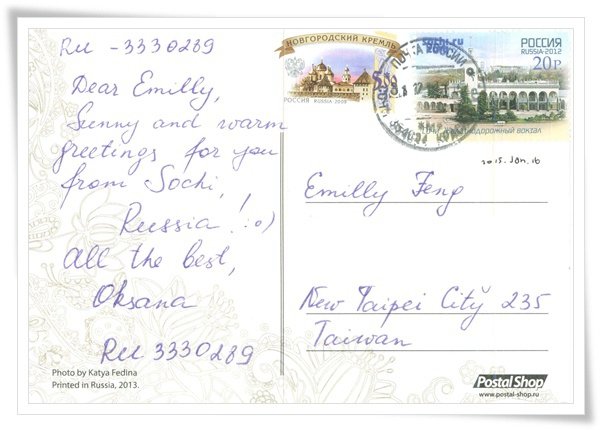 RU - 3330289
Dear Emilly,
Sunny and warm
greetings for you
from Sochi,
Russia! :o)
All the best,
Oksana
RU 3330289
Photo by Katya Fedina
Printed in Russia, 2013.
НОВГОРОДСКИЙ КРЕМЛЬ
РОССИЯ RUSSIA · 2009
sochi.ru
РОССИЯ
RUSSIA · 2012
20 Р
ПОЧТА РОССИИ
вокзал
2015. Jan. 16
Emilly Feng
New Taipei City 235
Taiwan
Postal Shop
www.postal-shop.ru